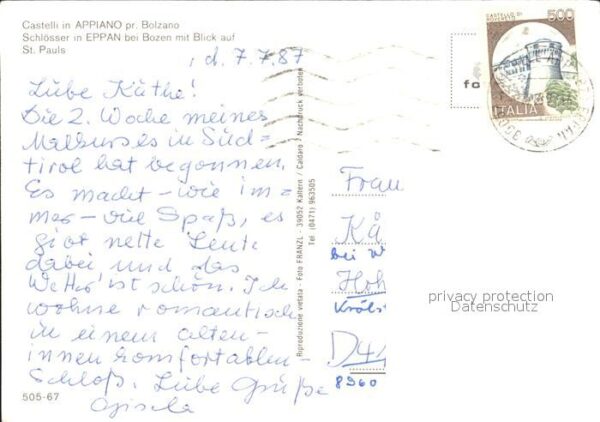 Castelli in APPIANO pr. Bolzano
Schlösser in EPPAN bei Bozen mit Blick auf
St. Pauls
, d. 7.7.87
Liebe Käthe!
Die 2. Woche meines
Malkurses in Süd-
tirol hat begonnen.
Es macht - wie im-
mer - viel Spaß, es
gibt nette Leute
dabei und das
Wetter ist schön. Ich
wohne romantisch
in einem alten -
innen komfortablen -
Schloß. Liebe Grüße
Gisela
505-67
Riproduzione vietata - Foto FRANZL - 39052 Kaltern / Caldaro / Nachdruck verboten
Tel (0471) 963505
CASTELLO DI
ROVERETO
500
ITALIA
fo
Frau
Kä
bei W
Hoh
Kröls
D44
8960
privacy protection
Datenschutz